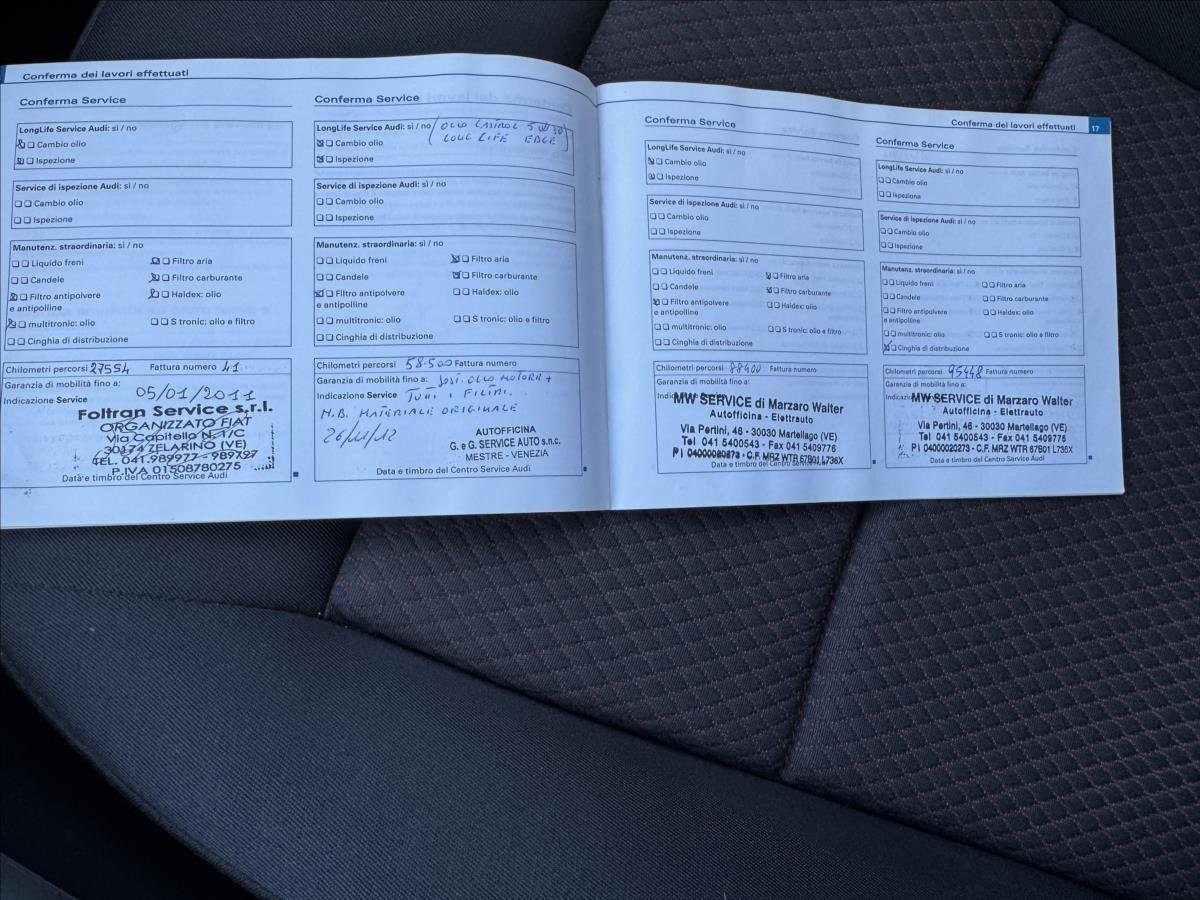 Conferma dei lavori effettuati
Conferma Service
LongLife Service Audi: sì / no
Cambio olio
Ispezione
Service di ispezione Audi: sì / no
Cambio olio
Ispezione
Manutenz. straordinaria: sì / no
Liquido freni
Filtro aria
Candele
Filtro carburante
Filtro antipolvere
e antipolline
Haldex: olio
multitronic: olio
S tronic: olio e filtro
Cinghia di distribuzione
Chilometri percorsi 27554 Fattura numero 41
Garanzia di mobilità fino a:
05/01/2011
Indicazione Service
Foltran Service s.r.l.
ORGANIZZATO FIAT
Via Capitello N. 1/C
30174 ZELARINO (VE)
TEL. 041.989977 - 989727
P.IVA 01508780275
Data e timbro del Centro Service Audi
Conferma Service
LongLife Service Audi: sì / no (OLIO CASTROL 5W30
Cambio olio LONG LIFE EDGE)
Ispezione
Service di ispezione Audi: sì / no
Cambio olio
Ispezione
Manutenz. straordinaria: sì / no
Liquido freni
Filtro aria
Candele
Filtro carburante
Filtro antipolvere
e antipolline
Haldex: olio
multitronic: olio
S tronic: olio e filtro
Cinghia di distribuzione
Chilometri percorsi 58.500 Fattura numero
Garanzia di mobilità fino a: SOST. OLIO MOTORE +
Indicazione Service TUTTI I FILTRI.
N.B. MATERIALE ORIGINALE
26/11/12
AUTOFFICINA
G. e G. SERVICE AUTO s.n.c.
MESTRE - VENEZIA
Data e timbro del Centro Service Audi
Conferma dei lavori effettuati 17
Conferma Service
LongLife Service Audi: sì / no
Cambio olio
Ispezione
Service di ispezione Audi: sì / no
Cambio olio
Ispezione
Manutenz. straordinaria: sì / no
Liquido freni
Filtro aria
Candele
Filtro carburante
Filtro antipolvere
e antipolline
Haldex: olio
multitronic: olio
S tronic: olio e filtro
Cinghia di distribuzione
Chilometri percorsi 88400 Fattura numero
Garanzia di mobilità fino a:
MW SERVICE di Marzaro Walter
Autofficina - Elettrauto
Via Pertini, 46 - 30030 Martellago (VE)
Tel 041 5400543 - Fax 041 5409776
P I 04000020273 - C.F. MRZ WTR 67B01 L736X
Data e timbro del Centro Service Audi
Conferma Service
LongLife Service Audi: sì / no
Cambio olio
Ispezione
Service di ispezione Audi: sì / no
Cambio olio
Ispezione
Manutenz. straordinaria: sì / no
Liquido freni
Filtro aria
Candele
Filtro carburante
Filtro antipolvere
e antipolline
Haldex: olio
multitronic: olio
S tronic: olio e filtro
Cinghia di distribuzione
Chilometri percorsi 95448 Fattura numero
Garanzia di mobilità fino a:
MW SERVICE di Marzaro Walter
Autofficina - Elettrauto
Via Pertini, 46 - 30030 Martellago (VE)
Tel 041 5400543 - Fax 041 5409776
P I 04000020273 - C.F. MRZ WTR 67B01 L736X
Data e timbro del Centro Service Audi